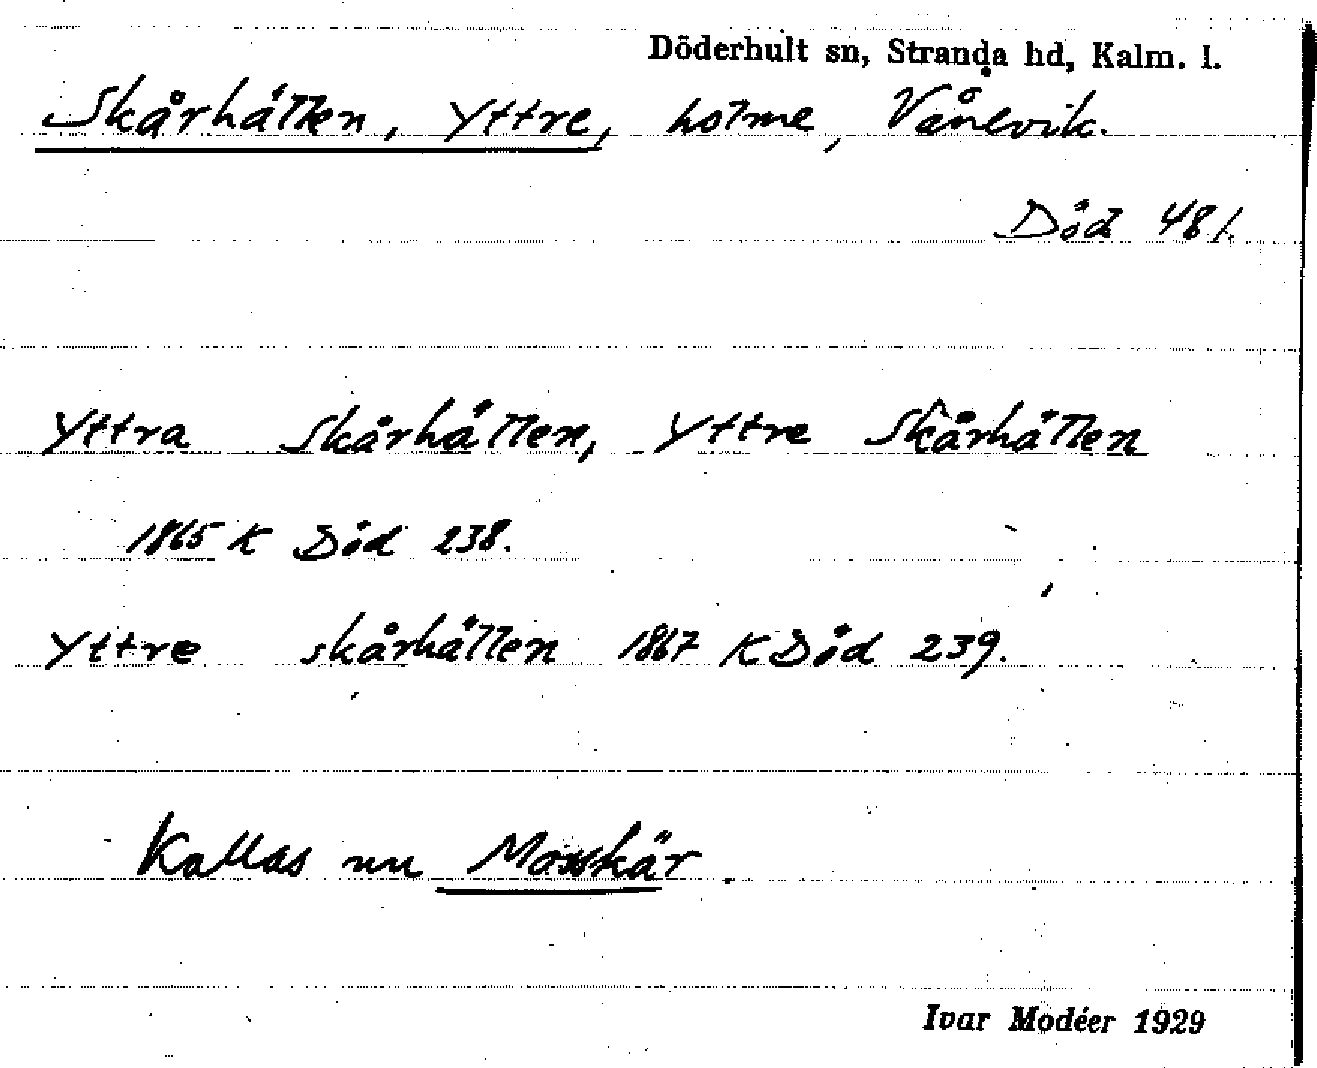 Döderhult sn, Stranda hd, Kalm. l.
Skårhällen, Yttre, holme, Vånevik.
Död 481.
Yttra Skårhällen, Yttre Skårhällen
1865 K Död 238.
Yttre skårhällen 1867 K Död 239.
Kallas nu Mosskär.
Ivar Modéer 1929